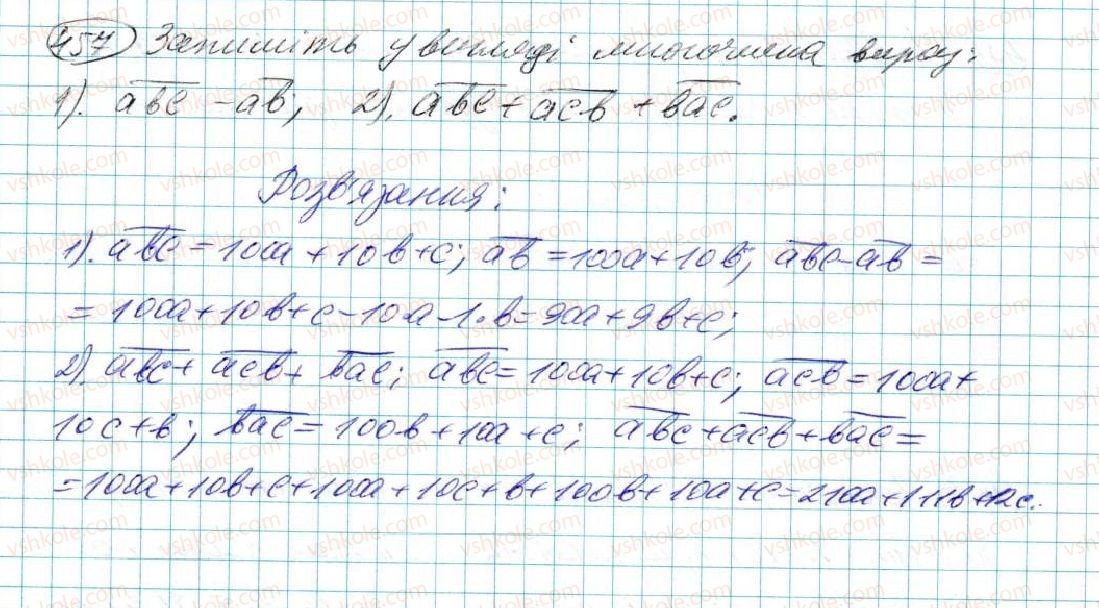 457 Запишіть у вигляді многочлена вираз:
1). a̅b̅c̅ - a̅b̅; 2). a̅b̅c̅ + a̅c̅b̅ + b̅a̅c̅.
Розв'язання:
1). a̅b̅c̅ = 100a + 10b + c; a̅b̅ = 100a + 10b; a̅b̅c̅ - a̅b̅ =
= 100a + 10b + c - 10a - 1·b = 90a + 9b + c;
2). a̅b̅c̅ + a̅c̅b̅ + b̅a̅c̅; a̅b̅c̅ = 100a + 10b + c; a̅c̅b̅ = 100a +
10c + b; b̅a̅c̅ = 100b + 10a + c; a̅b̅c̅ + a̅c̅b̅ + b̅a̅c̅ =
= 100a + 10b + c + 100a + 10c + b + 100b + 10a + c = 210a + 111b + 12c.